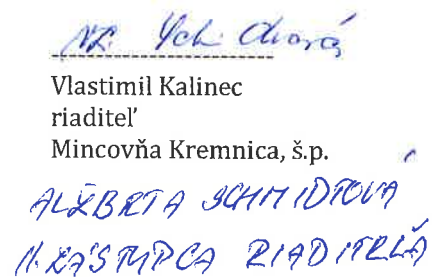 Vlastimil Kalinec
riaditeľ
Mincovňa Kremnica, š.p.
ALŽBETA SCHMIDTOVÁ
ZÁSTUPCA RIADITEĽA